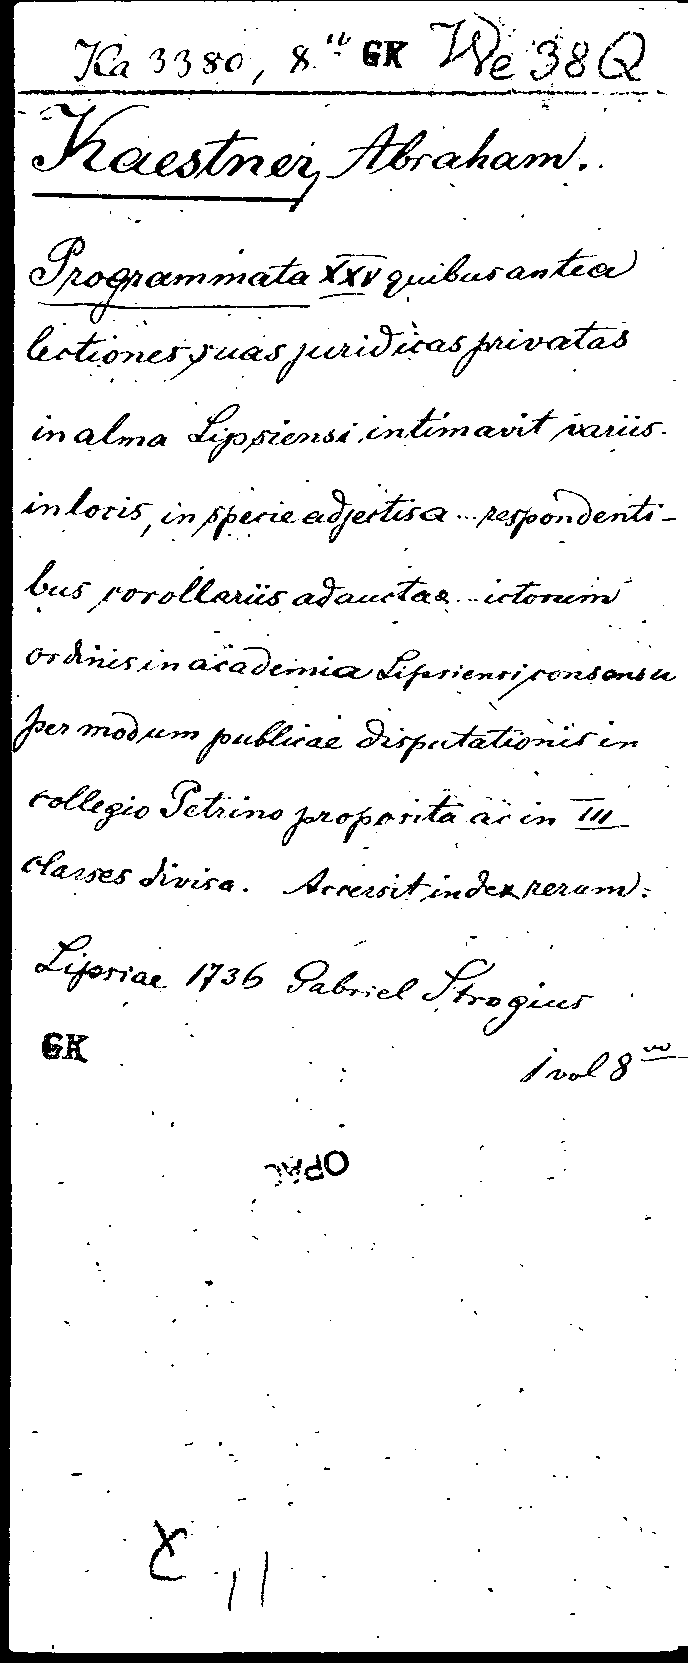 Ka 3380, 8vo GK We 38 Q
Kaestner, Abraham.
Programmata XXV quibus antea
lectiones suas juridicas privatas
in alma Lipsiensi intimavit variis
in locis, in specie adjectis a .. respondenti-
bus corollariis adaucta e .. ictorum
ordinis in academia Lipsiensi consensu
per modum publicae disputationis in
collegio Petrino proposita ac in III
classes divisa. Accersit index rerum.
Lipsiae 1736 Gabriel Trogius
GK
1 vol 8vo
OPAC